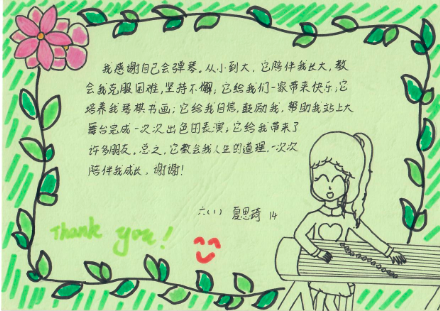 我感谢自己会弹琴。从小到大，它陪伴我长大，教
会我克服困难，坚持不懈；它给我们一家带来快乐；它
培养我琴棋书画；它给我自信，鼓励我，帮助我站上大
舞台完成一次次出色的表演；它给我带来了
许多朋友。总之，它教会我人生的道理，一次次
陪伴我成长，谢谢！
六(1) 夏思琦 14
Thank you!